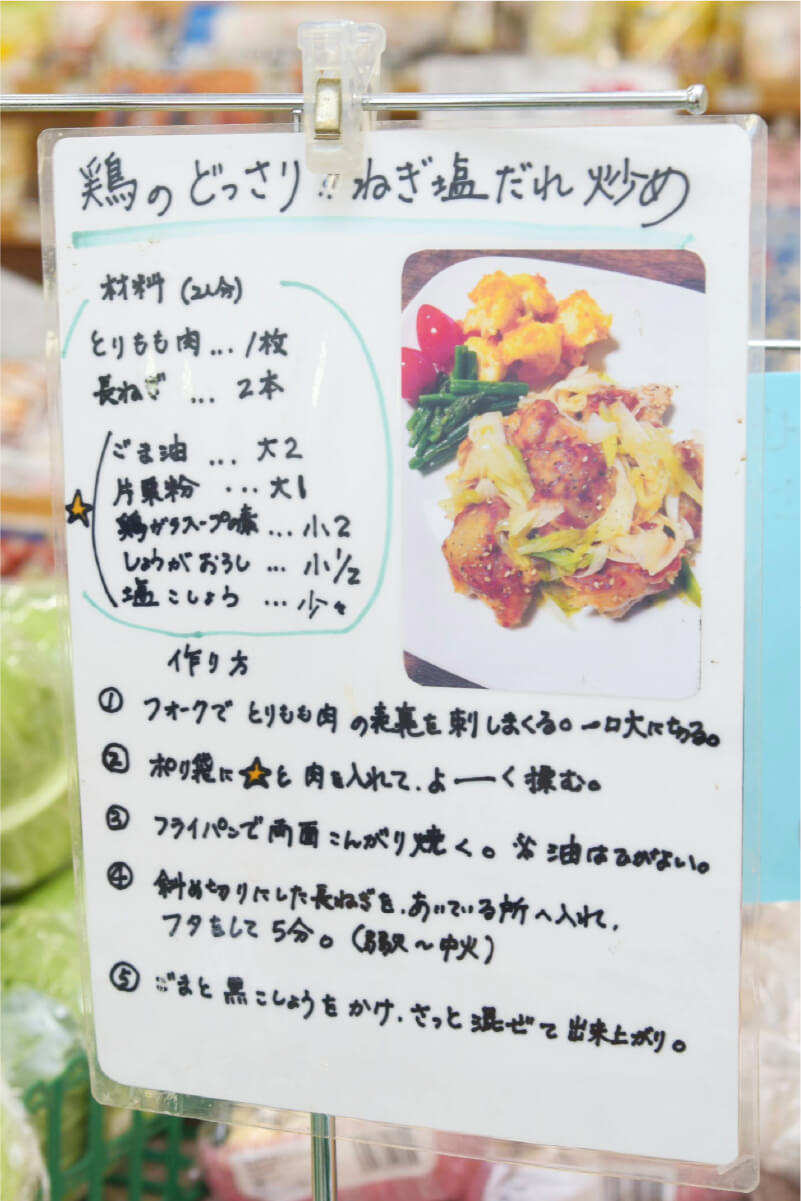 鶏のどっさり!!ねぎ塩だれ炒め
材料(2人分)
とりもも肉...1枚
長ねぎ...2本
ごま油...大2
片栗粉...大1
鶏ガラスープの素...小2
しょうがおろし...小1/2
塩こしょう...少々
作り方
① フォークでとりもも肉の表裏を刺しまくる。一口大に切る。
② ポリ袋に★と肉を入れて、よーく揉む。
③ フライパンで両面こんがり焼く。※油はひかない。
④ 斜め切りにした長ねぎを、あいている所へ入れ、
フタをして5分。(弱火~中火)
⑤ ごまと黒こしょうをかけ、さっと混ぜて出来上がり。